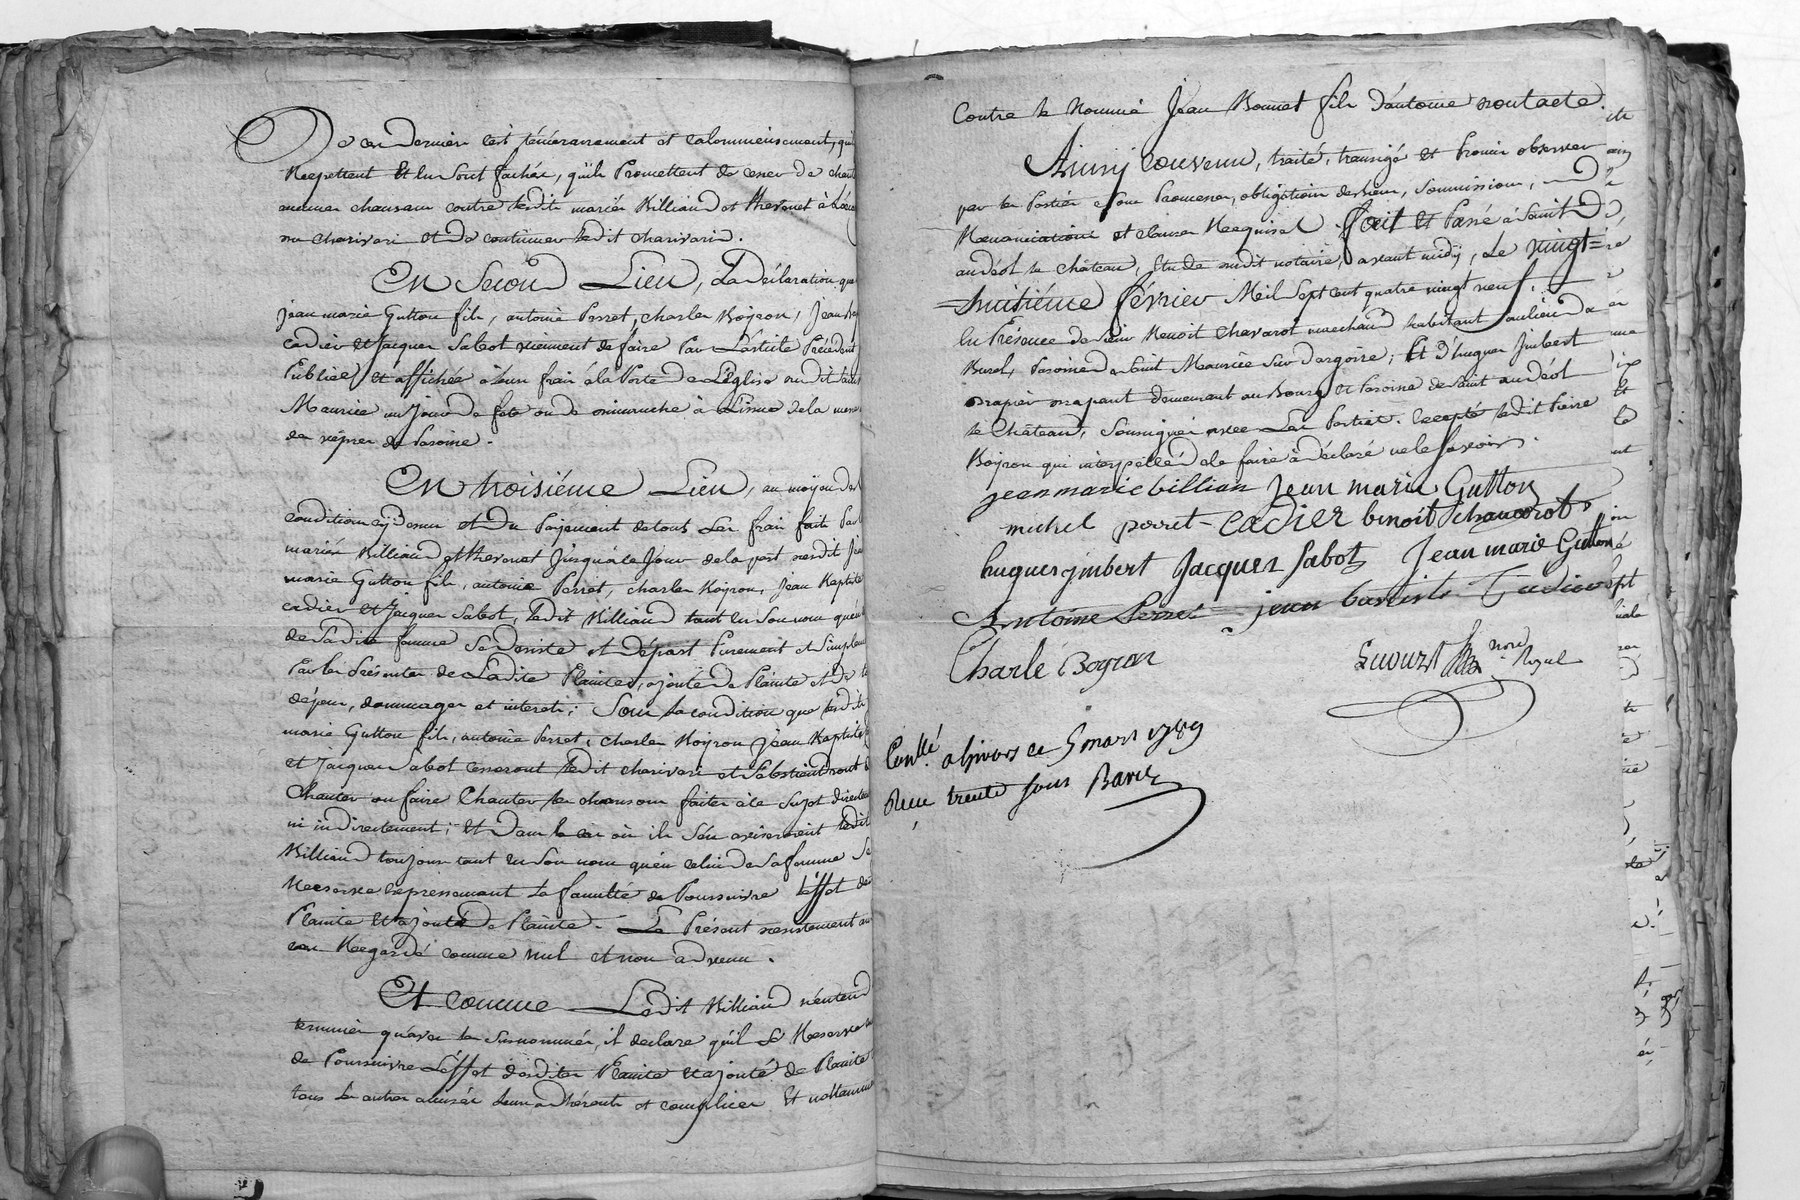 De ces derniers c'est témérairement et calomnieusement, qu'il
Reepettent Et en sont fachés, qu'ils Promettent de cesser de chant
aucunes chansons contre lesdits mariés Billiaud et Thevenet
au charivari et de continuer ledit charivarid.
En Second Lieu, La déclaration que
jean marie Gutton fils, antoine Perret, charles Boyron, Jean Bap
cadier et Jacques Sabot viennent de faire Par L'article Précédent
Publiée et affichée à leurs frais à la Porte de L'Eglise dudit saint
Maurice un jour de fete ou de dimanche à L'issue de la messe
de vêpres de Paroisse.
En troisiéme Lieu, au moyen des
conditions cy dessus et du Payement de tous Les frais faits Par
mariés Billiaud et Thevenet Jusqu'à ce Jour de la part desdits Jean
marie Gutton fils, antoine Perret, charles Boyron, jean Baptiste
cadier et Jacques Sabot, ledit Billiaud tant en son nom qu'en
de Sadite femme Se desiste et départ Purement et Simplem
Par les Présentes de Ladite Plainte, ajouté de Plainte et de t
dépens, dommages et interets; Sous la condition que lesdits
marie Gutton fils, antoine Perret, charles Boyron jean Baptiste
et Jacques Sabot cesseront ledit charivari et S'abstiendront d
Chanter ou faire Chanter les chansons faites à ce Sujet directem
ni indirectement; et Dans le cas où ils S'en aviseroient ledit
Billiaud toujours tant en Son nom qu'en celui de Sa femme Se
Reeserve expressement la faculté de Poursuivre l'éffet de
Plainte et ajouté de Plainte. Le Présent desistement au
cas Regardé comme nul et non advenu.
Et comme Ledit Billiaud n'entend
terminer qu'avec les Susnommés, il declare qu'il Se Reeserve
de Poursuivre L'éffet desdites Plainte et ajouté de Plainte
tous les autres accusés leurs adhérents et complices Et nottamm
Contre le Nommé Jean Bonnet fils d'antoine dont acte.
Ainsy convenu, traité, transigé et Promis observer
par les Parties sous Promesses, obligations de biens, Soumissions,
Renonciations et clauses Reequises. Fait et Passé à Saint
andéol le château, Etude dudit notaire, avant midy, Le vingt=
=huitiéme février Mil Sept cent quatre vingt neuf.
En Présence de Sieur Benoit Chavarot marchand habitant au lieu de
Burel, Paroisse de Saint Maurice Sur dargoire; Et d'hugues Jmbert
drapier drapant demeurant au Bourg et Paroisse de Saint andéol
le Château, Soussignés avec Les Parties. Excepté ledit Pierre
Boyron qui interpellé de le faire à déclaré ne le savoir.
jean marie billian Jean marie Gutton
michel perret cadier benoit chavarot
hugues jmbert Jacques Sabot Jean marie Gutton
Antoine Perret jean baptiste Cadier
Charle Boyron
nore Royal
Conllé. a Givors ce 5 mars 1789
Reçu trente sous